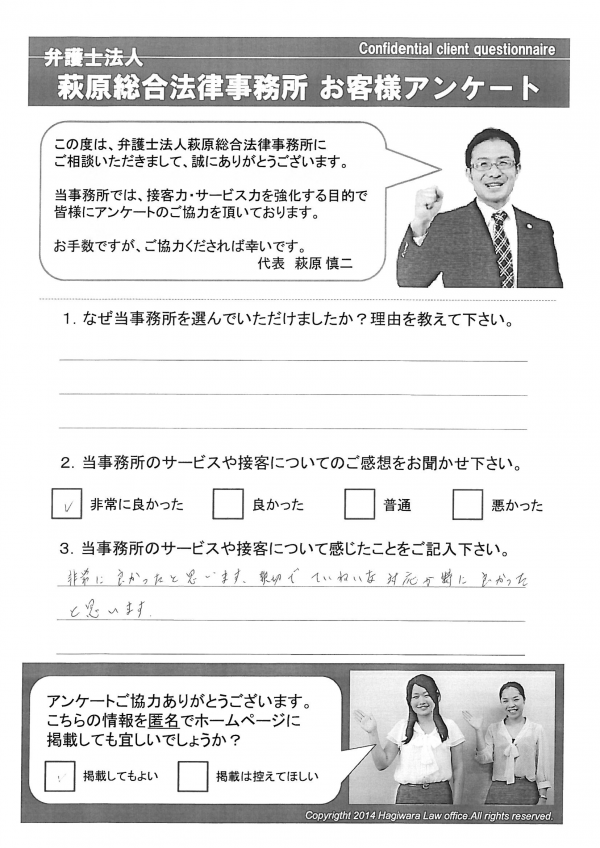 Confidential client questionnaire
弁護士法人
萩原総合法律事務所 お客様アンケート
この度は、弁護士法人萩原総合法律事務所に
ご相談いただきまして、誠にありがとうございます。
当事務所では、接客力・サービス力を強化する目的で
皆様にアンケートのご協力を頂いております。
お手数ですが、ご協力くだされば幸いです。
代表 萩原 慎二
1. なぜ当事務所を選んでいただけましたか？理由を教えて下さい。
2. 当事務所のサービスや接客についてのご感想をお聞かせ下さい。
✓ 非常に良かった 良かった 普通 悪かった
3. 当事務所のサービスや接客について感じたことをご記入下さい。
非常に良かったと思います、親切でていねいな対応が特に良かった
と思います.
アンケートご協力ありがとうございます。
こちらの情報を匿名でホームページに
掲載しても宜しいでしょうか？
✓ 掲載してもよい 掲載は控えてほしい
Copyright 2014 Hagiwara Law office.All rights reserved.